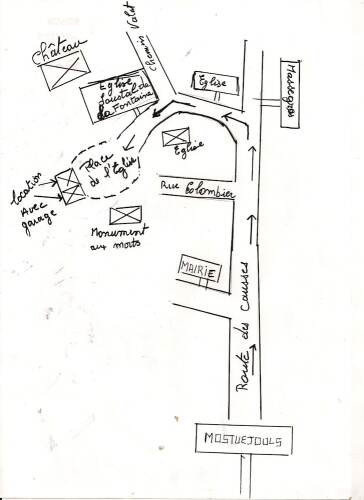 Château
Chemin Valat
Eglise
Joustal de
La Fontaine
Eglise
Massegros
Place
de l'Eglise
Eglise
location
Avec
garage
Rue Colombier
Monument
aux morts
MAIRIE
Route des Causses
MOSTUEJOULS